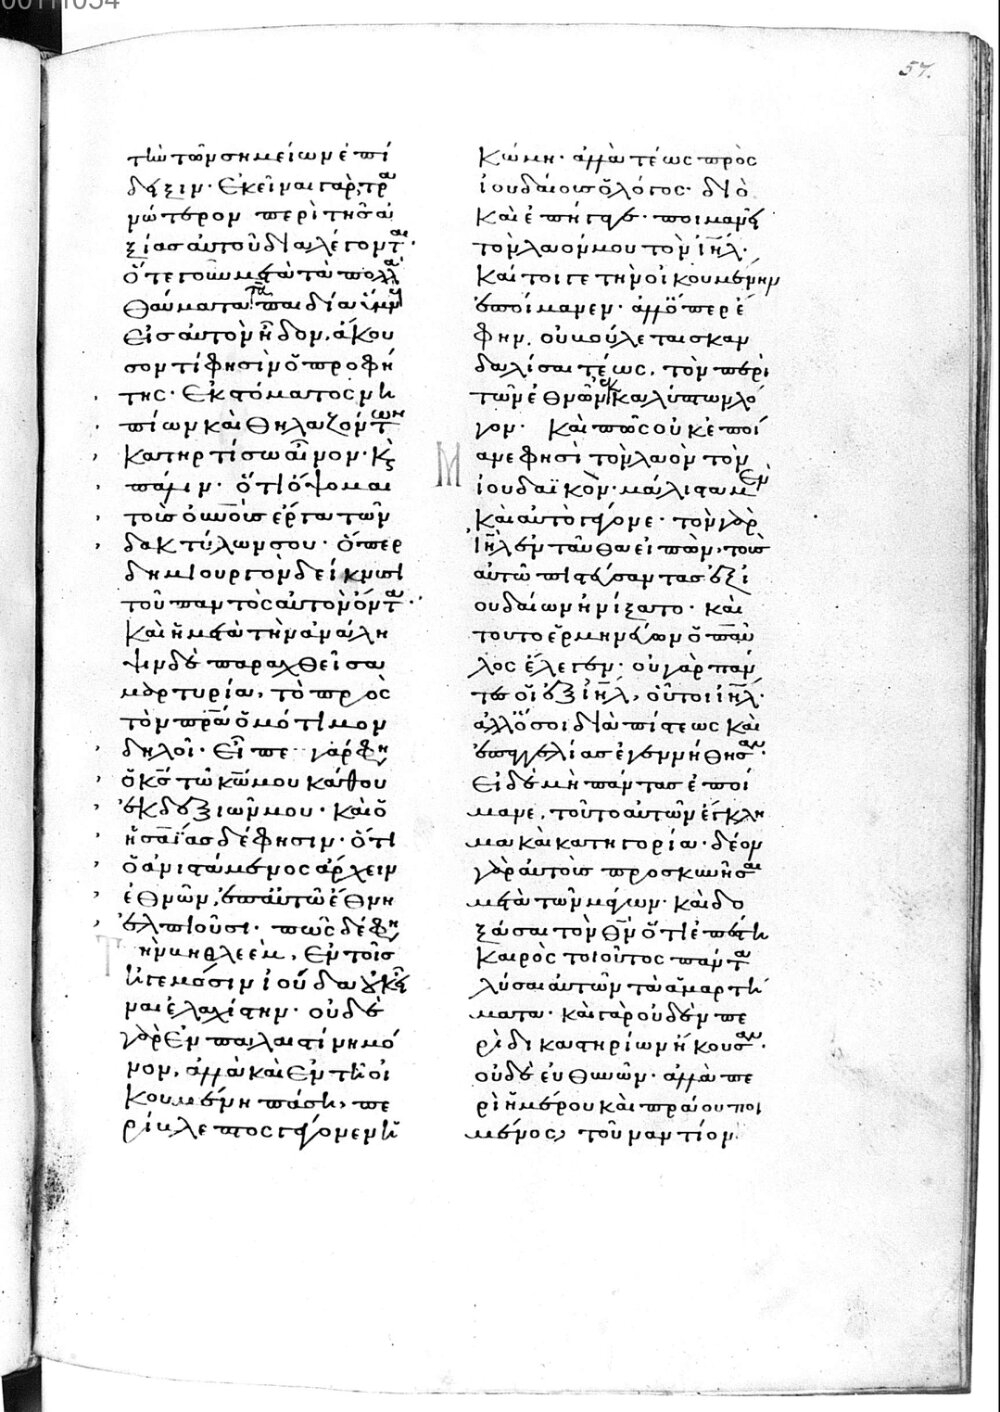 57.
τὴν τῶν σημείων ἐπί
δειξιν· ἐκεῖναι γὰρ τρα
νώτερον περὶ τῆς ἀ
ξίας αὐτοῦ διαλέγονται·
ὅτε γοῦν μετὰ τὰ πολλὰ
θαύματα τὰ παιδία ὕμνει
εἰς αὐτὸν ᾖδον, ἄκου
σον τί φησὶν ὁ προφή
της· ἐκ στόματος νη
πίων καὶ θηλαζόντων
κατηρτίσω αἶνον· Κς
πάλιν· ὅτι ὄψομαι
τοὺς οὐνοὺς ἔργα τῶν
δακτύλων σου· ὅπερ
δημιουργὸν δείκνυσι
τοῦ παντὸς αὐτὸν ὄντα·
καὶ ἡ μετὰ τὴν ἀνάλη
ψιν δὲ παραχθεῖσα
μαρτυρία, τὸ πρὸς
τὸν πρα ὁμότιμον
δηλοῖ· εἶπε γάρ φη
ὁ κς τῶ κω μου κάθου
ἐκ δεξιῶν μου· καὶ ὁ
ἡσαΐας δέ φησιν· ὅτι
ὁ ἀνιστάμενος ἄρχειν
ἐθνῶν, ἐπ αὐτῶ ἔθνη
ἐλπιοῦσι· πῶς δέ φη
τὴν βηθλεὲμ, ἐν τοῖς
ἡγεμόσιν ἰούδα οὐκ εἶ
ναι ἐλαχίστην· οὐδὲ
γὰρ ἐν παλαιστίνη μό
νον, ἀλλὰ καὶ ἐν τῆ οἰ
κουμένη πάση, πε
ρίβλεπτος γέγονεν ἡ
κώμη· ἀλλὰ τέως πρὸς
ἰουδαίους ὁ λόγος· διὸ
καὶ ἐπήγαγε· ποιμανεῖ
τὸν λαόν μου τὸν ιηλ·
καίτοιγε τὴν οἰκουμένην
ἐποίμανεν· ἀλλ' ὅπερ ἔ
φην, οὐ βούλεται σκαν
δαλίσαι τέως, τὸν περὶ
τῶν ἐθνῶν ἐκκαλύπτων λό
γον· καὶ πῶς οὐκ ἐποί
μανε φησὶ τὸν λαὸν τὸν
ἰουδαϊκόν· μάλιστα μὲν
καὶ αὐτὸ γέγονε· τὸν γὰρ
ιηλ ἐνταῦθα εἰπὼν, τοὺς
αὐτῶ πιστεύσαντας ἐξ ἰ
ουδαίων ἠνίξατο· καὶ
τοῦτο ἑρμηνεύων ὁ παῦ
λος ἔλεγεν· οὐ γὰρ πάν
τες οἱ ἐξ ιηλ, οὗτοι ιηλ·
ἀλλ' ὅσοι διὰ πίστεως καὶ
ἐπαγγελίας ἐγεννήθησαν·
εἰ δὲ μὴ πάντας ἐποί
μανε, τοῦτο αὐτῶν ἔγκλη
μα καὶ κατηγορία· δέον
γὰρ αὐτοὺς προσκυνῆσαι
μετὰ τῶν μάγων· καὶ δο
ξάσαι τὸν θν ὅτι ἐπέστη
καιρὸς τοιοῦτος πάντα
λύσαι αὐτῶν τὰ ἁμαρτή
ματα· καὶ γὰρ οὐδὲν πε
ρὶ δικαστηρίων ἤκουσαν·
οὐδὲ εὐθυνῶν· ἀλλὰ πε
ρὶ ἡμέρου καὶ πράου ποι
μένος, τοὐναντίον